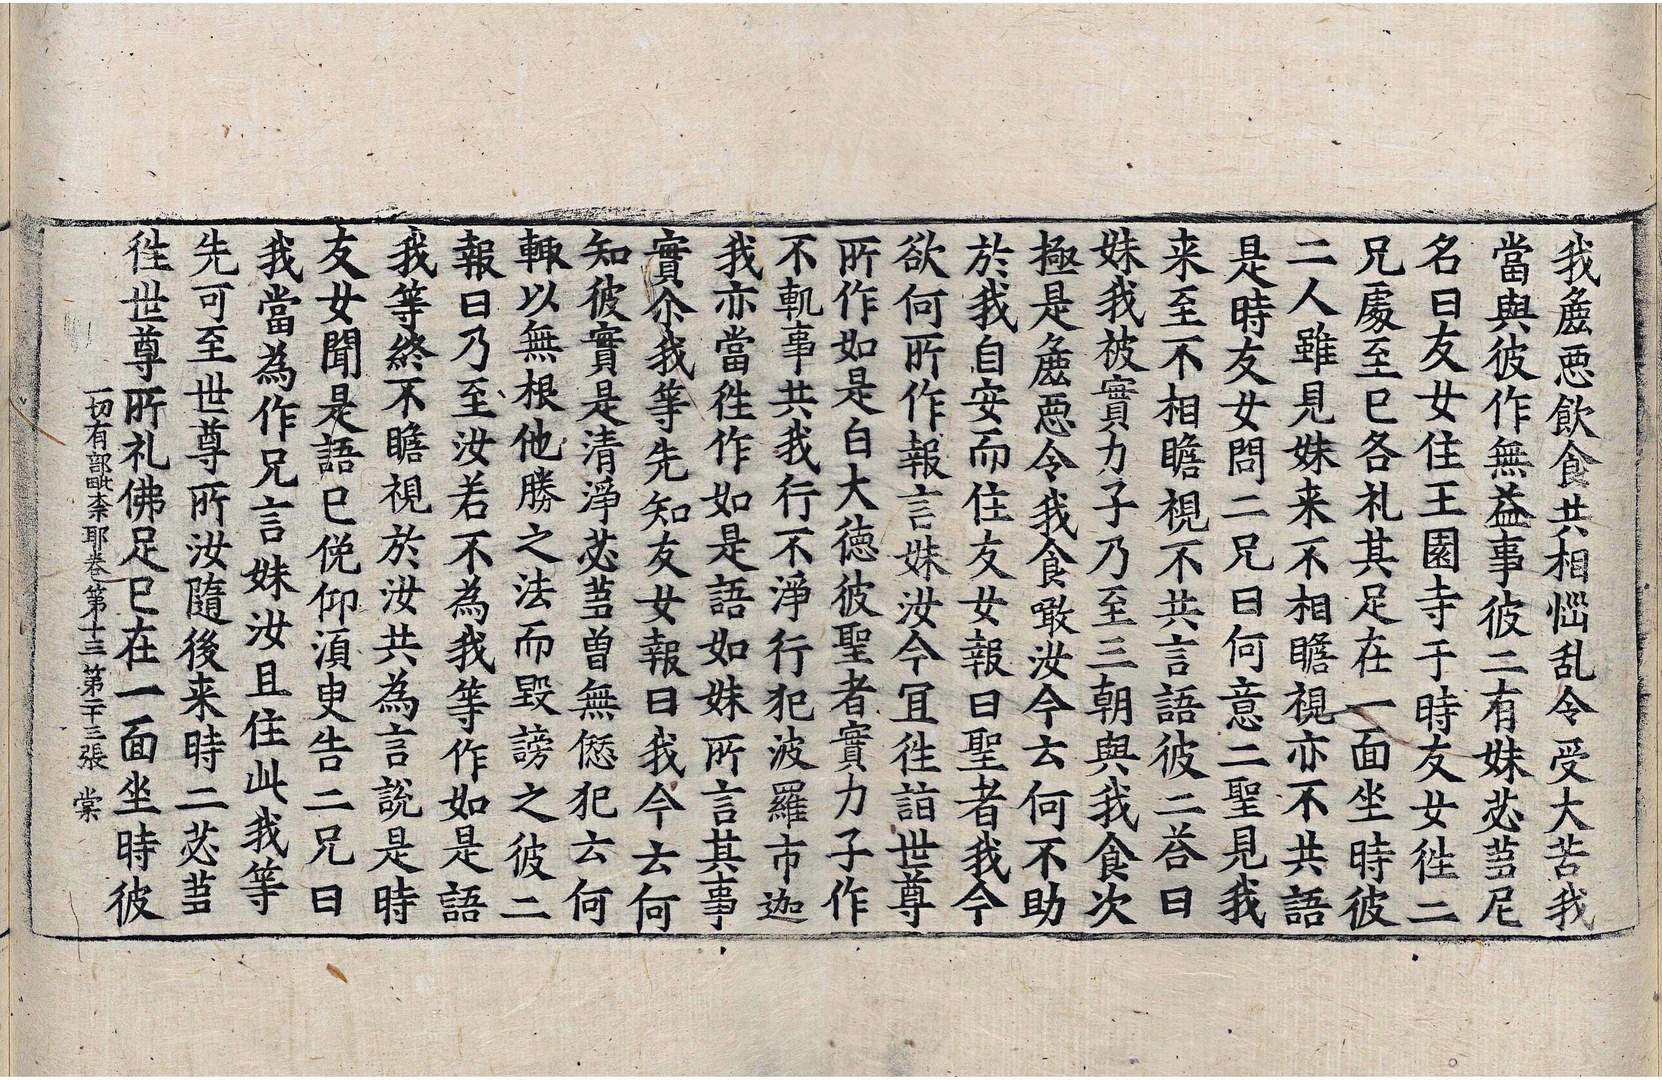 我麁惡飲食共相惱乱令受大苦我
當與彼作無益事彼二有妹苾蒭尼
名曰友女住王園寺于時友女徃二
兄處至已各礼其足在一面坐時彼
二人雖見妹来不相瞻視亦不共語
是時友女問二兄曰何意二聖見我
来至不相瞻視不共言語彼二荅曰
妹我被實力子乃至三朝與我食次
極是麁惡令我食噉汝今云何不助
於我自安而住友女報曰聖者我今
欲何所作報言妹汝今冝徃詣世尊
所作如是白大德彼聖者實力子作
不軌事共我行不淨行犯波羅市迦
我亦當徃作如是語如妹所言其事
實尒我等先知友女報曰我今云何
知彼實是清淨苾蒭曾無愆犯云何
輙以無根他勝之法而毀謗之彼二
報曰乃至汝若不為我等作如是語
我等終不瞻視於汝共為言說是時
友女聞是語已俛仰湏臾告二兄曰
我當為作兄言妹汝且住此我等
先可至世尊所汝隨後来時二苾蒭
徃世尊所礼佛足已在一面坐時彼
一切有部毗柰耶卷第十三 第二十三張 棠